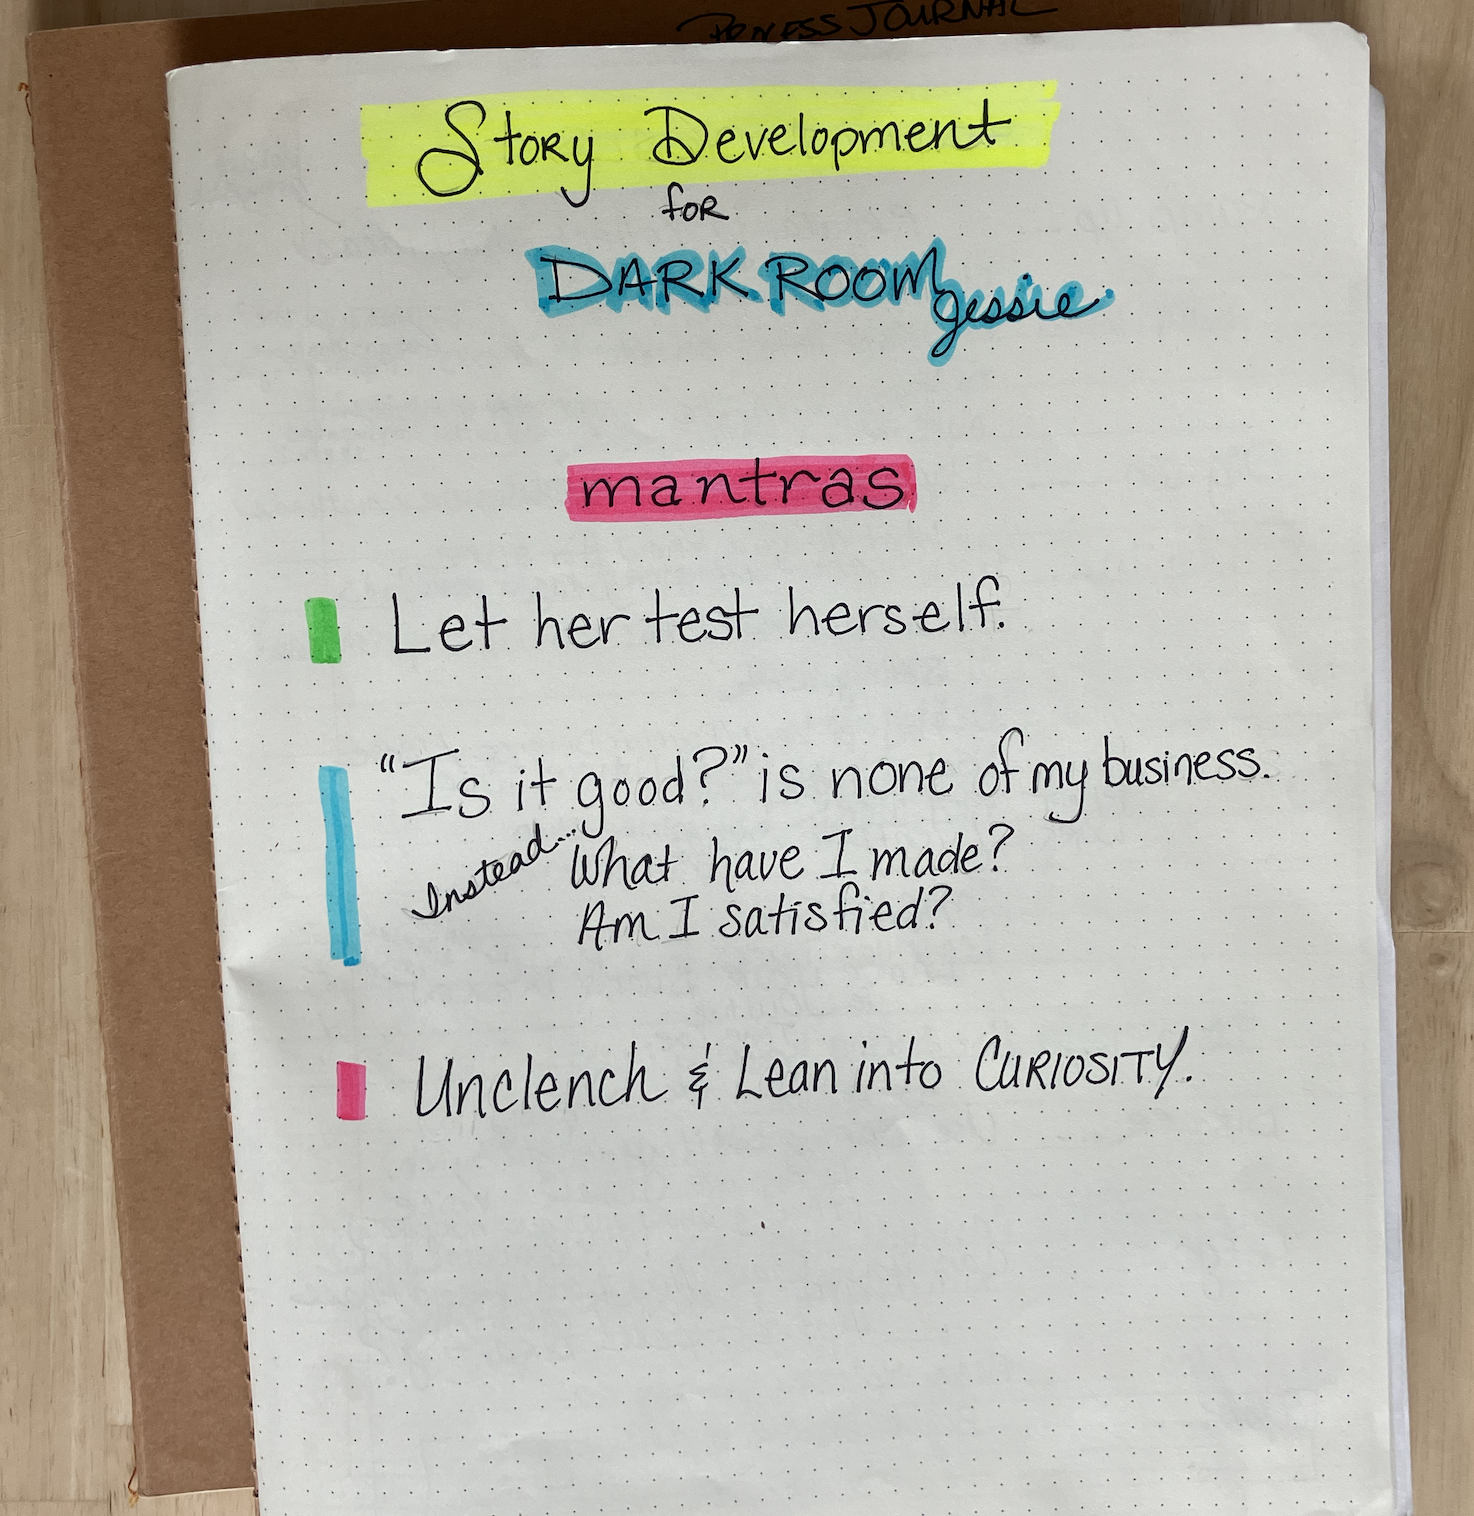 JOURNAL
Story Development
for
DARK ROOM Jessie
mantras
Let her test herself.
“Is it good?” is none of my business.
Instead... What have I made?
Am I satisfied?
Unclench & Lean into CURIOSITY.